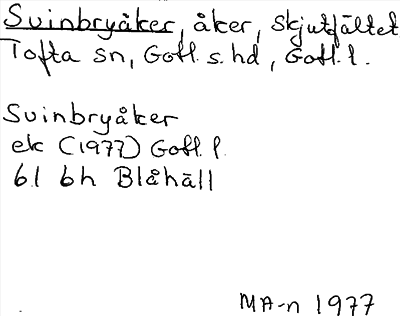 Svinbryåker, åker, Skjutfältet
Tofta sn, Gotl. s. hd, Gotl. l.
Svinbryåker
ek (1977) Gotl. l.
6I 6h Blåhäll
MA-n 1977